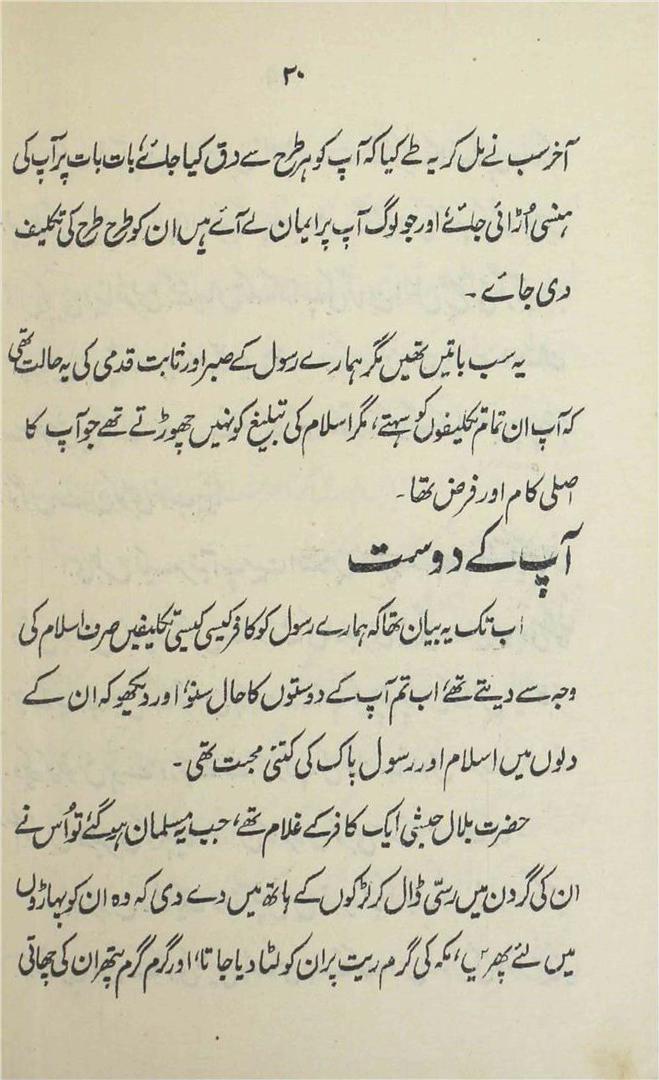 ۲۰
آخر سب نے مل کر یہ طے کیا کہ آپ کو ہر طرح سے دق کیا جائے، بات بات پر آپ کی
ہنسی اُڑائی جائے، اور جو لوگ آپ پر ایمان لے آئے ہیں ان کو طرح طرح کی تکلیف
دی جائے۔
یہ سب باتیں تھیں مگر ہمارے رسول کے صبر اور ثابت قدمی کی یہ حالت تھی
کہ آپ ان تمام تکلیفوں کو سہتے، مگر اسلام کی تبلیغ کو نہیں چھوڑتے تھے جو آپ کا
اصلی کام اور فرض تھا۔
آپ کے دوست
اب تک یہ بیان تھا کہ ہمارے رسول کو کافر کیسی کیسی تکلیفیں صرف اسلام کی
وجہ سے دیتے تھے، اب تم آپ کے دوستوں کا حال سنو، اور دیکھو کہ ان کے
دلوں میں اسلام اور رسول پاک کی کتنی محبت تھی۔
حضرت بلال حبشی ایک کافر کے غلام تھے، جب یہ مسلمان ہو گئے تو اُس نے
ان کی گردن میں رسّی ڈال کر لڑکوں کے ہاتھ میں دے دی کہ وہ ان کو پہاڑوں
میں لئے پھریں، مکہ کی گرم ریت پر ان کو لٹا دیا جاتا، اور گرم گرم پتھر ان کی چھاتی